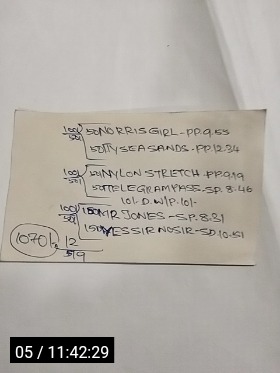 50NORRISGIRL-PP.9.55
50TTYSEASANDS-PP.12.34
NYLON STRETCH-PP.9.19
50TTELEGRAMPASS-SP.8.46
10/- D.W/P.10/-
MR JONES-SP.8.31
YESSIR NOSIR-SD.10.51
1070/- 12
05 / 11:42:29